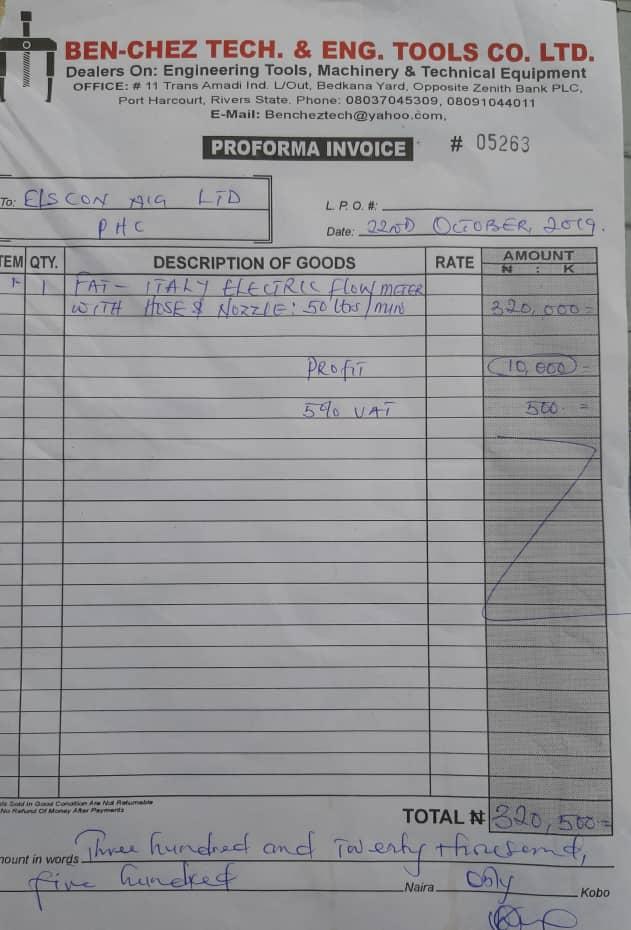 BEN-CHEZ TECH. & ENG. TOOLS CO. LTD.
Dealers On: Engineering Tools, Machinery & Technical Equipment
OFFICE: # 11 Trans Amadi Ind. L/Out, Bedkana Yard, Opposite Zenith Bank PLC,
Port Harcourt, Rivers State. Phone: 08037045309, 08091044011
E-Mail: Bencheztech@yahoo.com,
PROFORMA INVOICE # 05263
To: ELSCON AIG LTD
PHC
L. P. O. #:
Date: 22ND OCTOBER, 2019.
TEM QTY. DESCRIPTION OF GOODS RATE AMOUNT
₦ : K
1- 1 FAT- ITALY ELECTRIC flow METER
WITH HOSE & NOZZLE: 50 ltrs/min 320,000=
PROFIT 10,000=
5% VAT 500.=
ds Sold In Good Condition Are Not Returnable
No Refund Of Money After Payments
TOTAL ₦ 320,500=
mount in words Three hundred and Twenty thousand,
five hundred Naira Only Kobo